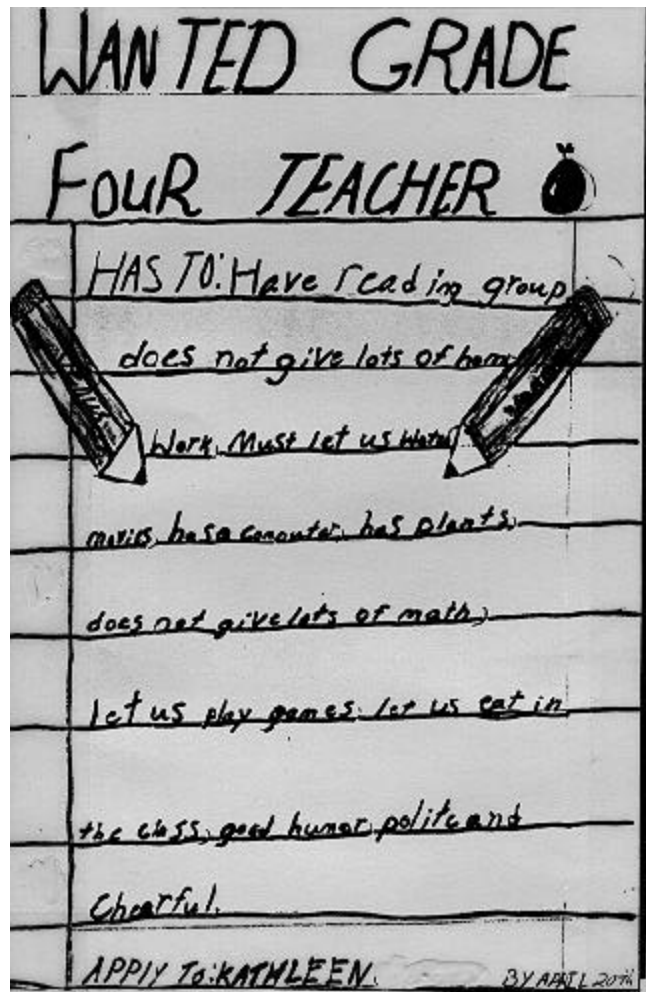 WANTED GRADE
FOUR TEACHER
HAS TO: Have reading group
does not give lots of home
Work, Must let us watch
movies, has a computer, has plants,
does not give lots of math,
let us play games, let us eat in
the class, good humor, polite and
Chearful.
APPLY To: KATHLEEN.
BY APRIL 20th